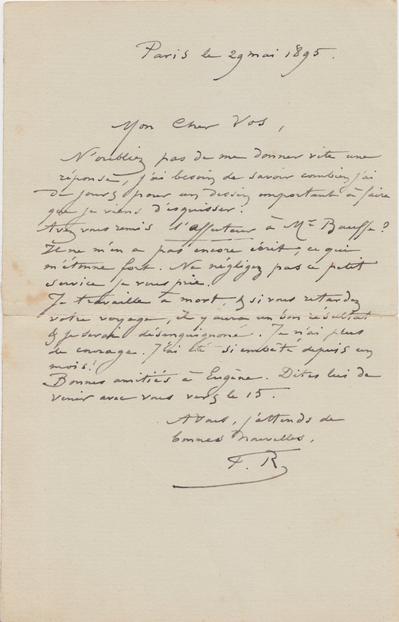 Paris le 29 mai 1895.
Mon Cher Vos,
N'oubliez pas de me donner vite une
réponse, j'ai besoin de savoir combien j'ai
de jours pour un dessin important à faire
que je viens d'esquisser.
Avez vous remis l'affuteur à Mr ?
Il ne m'a pas encore écrit, ce qui
m'étonne fort. Ne négligez pas ce petit
service je vous prie.
Je travaille à mort & si vous retardez
votre voyage, il y aura un bon résultat
& je serai désenguignonné. Je n'ai plus
de courage. J'ai été si embêté depuis un
mois!
Bonnes amitiés à Eugène. Dites lui de
venir avec vous vers le 15.
A vous, j'attends de
bonnes nouvelles,
F. R